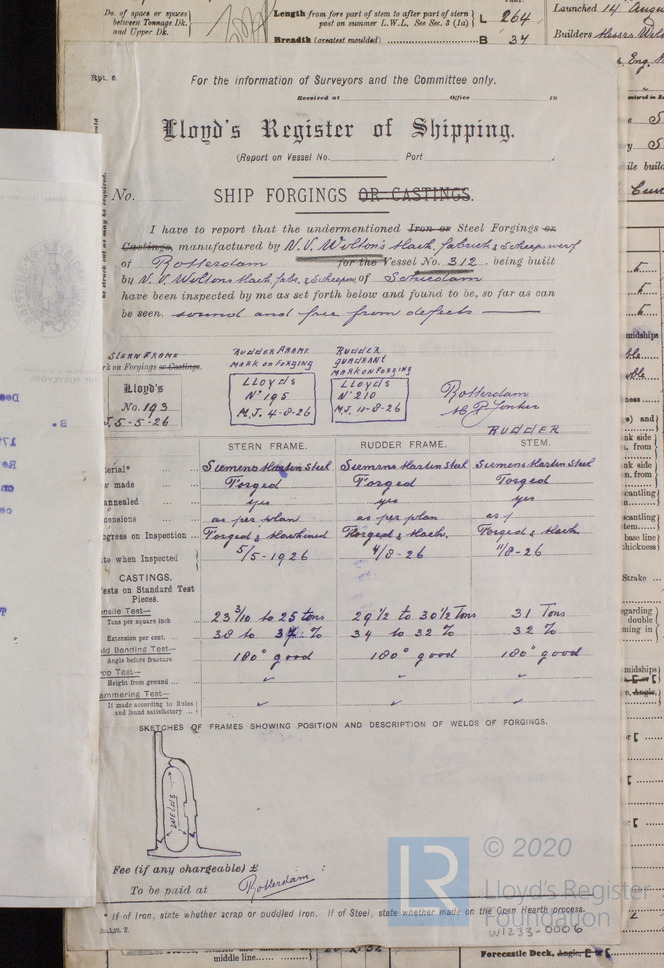 No. of space or spaces
between Tonnage Dk.
and Upper Dk.
Length from fore part of stem to after part of stern
post on summer L.W.L. See Sec. 3 (1a)
L 264
Breadth (greatest moulded)
B 37
Launched 14
Builders Messrs
Rpt. 6.
For the information of Surveyors and the Committee only.
Received at Office 19
Lloyd's Register of Shipping.
(Report on Vessel No. Port
No. SHIP FORGINGS OR CASTINGS.
I have to report that the undermentioned Iron or Steel Forgings or
Castings, manufactured by N.V. Wilton's Mach. fabriek & Scheepswerf
of Rotterdam for the Vessel No. 312. being built
by N.V. Wiltons Mach. fabr. & Scheepsw. of Schiedam
have been inspected by me as set forth below and found to be, so far as can
be seen, sound and free from defects
STERN FRAME
k on Forgings or Castings.
Lloyd's
No. 193
J. 5-5-26
RUDDER FRAME
MARK ON FORGING
LLOYDS
No 195
M.J. 4-8-26
RUDDER
QUADRANT
MARK ON FORGING
LLOYDS
No 210
M.J. 11-8-26
Rotterdam
RUDDER
STERN FRAME. RUDDER FRAME. STEM.
erial* Siemens Martin Steel Siemens Martin Steel Siemens Martin Steel
made Forged Forged Forged
nnealed yes yes yes
ensions as per plan as per plan as p
ogress on Inspection Forged & Machined Forged & Mach. Forged & Mach.
te when Inspected 5/5-1926 4/8-26 11/8-26
CASTINGS.
ests on Standard Test
Pieces.
nsile Test—
Tons per square inch 23 3/10 to 25 tons 29 1/2 to 30 1/2 Tons 31 Tons
Extension per cent. 38 to 37 % 34 to 32 % 32 %
ld Bending Test—
Angle before fracture 180° good 180° good 180° good
op Test—
Height from ground
ammering Test—
If made according to Rules
and found satisfactory
SKETCHES OF FRAMES SHOWING POSITION AND DESCRIPTION OF WELDS OF FORGINGS.
WELDS
Fee (if any chargeable) £ :
To be paid at Rotterdam
* If of Iron, state whether scrap or puddled Iron. If of Steel, state whether made on the Open Hearth process.
W1233-0006
© 2020
LR
Lloyd's Register
Foundation
middle line
Forecastle Deck, Angle,